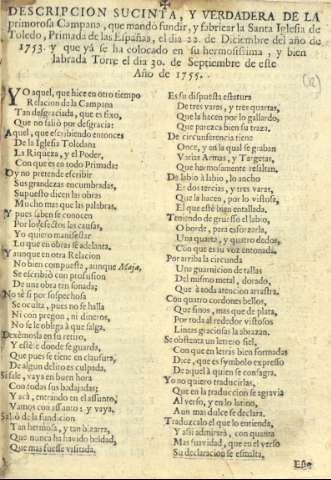 DESCRIPCION SUCINTA, Y VERDADERA DE LA
primorosa Campana, que mandò fundir, y fabricar la Santa Iglesia de
Toledo, Primada de las Españas, el dia 22. de Diciembre del año de
1753. y que yà se ha colocado en su hermosissima, y bien
labrada Torre el dia 30. de Septiembre de este
Año de 1755.
YO aquel, que hice en otro tiempo
Relacion de la Campana
Tan desgraciada, que es fixo,
Que no saliò por desgracia:
Aquel, que escribiendo entonces
De la Iglesia Toledana
La Riqueza, y el Poder,
Con que es en todo Primada:
Oy no pretende escribir
Sus grandezas encumbradas,
Supuesto dicen las obras
Mucho mas que las palabras.
Y pues saben se conocen
Por los efectos las causas,
Yo quiero manifestar
Lo que en obras se adelanta.
Y aunque en otra Relacion
No bien compuesta, aunque Maja,
Se escribiò con profusion
De una obra tan sonada;
No sè si por sospechosa
Se oculta, pues no se halla
Ni con pregon, ni dineros,
No se le obliga à que salga.
Dexèmosla en su retiro,
Y esse è donde se guarda,
Que pues se tiene en clausura,
De algun delito es culpada.
Si sale, vaya en buen hora
Con todas sus badajadas;
Y acà, entrando en el assunto,
Vamos con assunto: y vaya.
Saliò de la fundicion
Tan hermosa, y tan bizarra,
Que nunca ha havido beldad,
Que mas fuesse visitada.
Es su dispuesta estatura
De tres varas, y tres quartas,
Que la hacen por lo gallardo,
Que parezca bien su traza.
De circunferencia tiene
Once, y en la qual se graban
Varias Armas, y Targetas,
Que hermosamente resaltan.
De labio à labio, lo ancho
Es dos tercias, y tres varas,
Que la hacen, por lo vistosa,
El que estè bien entallada.
Teniendo de gruesso el labio,
O borde, para esforzarla,
Una quarta, y quatro dedos,
Con que es su voz entonada.
Por arriba la circunda
Una guarnicion de tallas
Del mismo metal, dorado,
Que à toda atencion arrastra.
Con quatro cordones bellos,
Que finos, mas que de plata,
Por toda al rededor vistosos
Lineas graciosas la abrazan.
Se obstenta un letrero fiel,
Con que en letras bien formadas
Dice, que es symbolo expresso
De aquel à quien se consagra.
Yo no quiero traducirlas,
Que en la traduccion se agravia
Al verso, y en lo latino,
Aun mas dulce se declara.
Traduzcalo el que lo entienda,
Y assi admirarà, con quanta
Mas suavidad, que en el verso
Su declaracion se esmalta,
Este